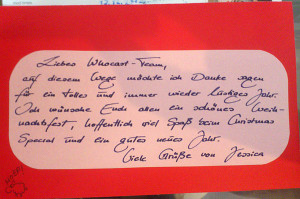 Liebes Whocast-Team,
auf diesem Wege möchte ich Danke sagen
für ein tolles und immer wieder lustiges Jahr.
Ich wünsche Euch allen ein schönes Weih-
nachtsfest, hoffentlich viel Spaß beim Christmas
Special und ein gutes neues Jahr.
Viele Grüße von Jessica